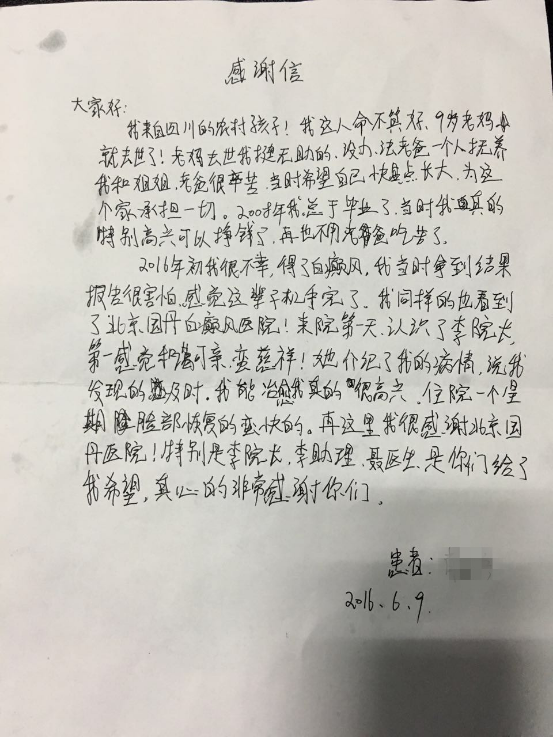 感谢信
大家好:
我来自四川的农村孩子!我这人命不算好、9岁老妈
就去世了!老妈去世我挺无助的、没办法老爸一个人抚养
我和姐姐、老爸很辛苦、当时希望自己快点长大、为这
个家承担一切。2008年我总于毕业了、当时我真的
特别高兴可以挣钱了、再也不用老爸吃苦了。
2016年初我很不幸,得了白癜风,我当时拿到结果
报告很害怕、感觉这辈子机乎完了、我同样的也看到
了北京国丹白癜风医院!来院第一天、认识了李院长、
第一感觉和蔼可亲、蛮慈祥!她介绍了我的病情,说我
发现的蛮及时、我能治愈我真的很高兴、住院一个星
期脸部恢复的蛮快的。再这里我很感谢北京国
丹医院!特别是李院长,李助理、聂医生、是你们给了
我希望,真心的非常感谢你们。
患者:
2016、6、9.